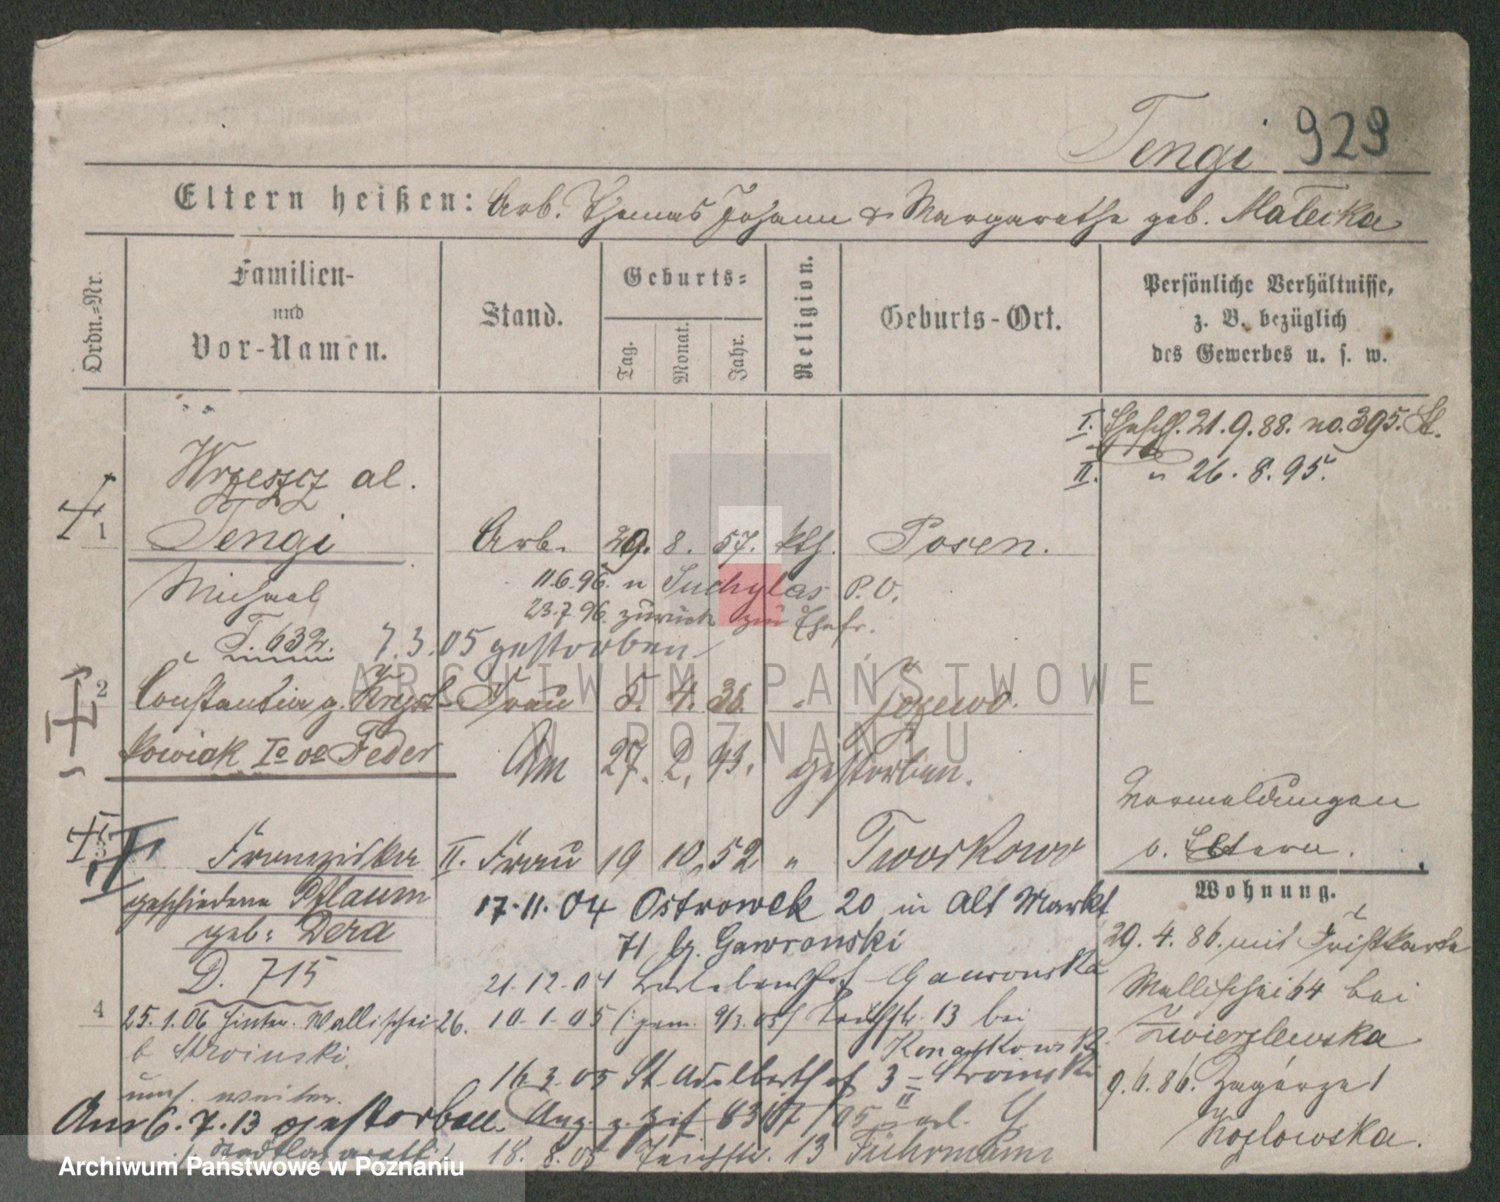 Tengi 929
Eltern heißen: Arb. Thomas Johann & Margarethe geb. Malecka
Ordn.-Nr.
Familien-
und
Vor-Namen.
Stand.
Geburts-
Tag.
Monat.
Jahr.
Religion.
Geburts-Ort.
Persönliche Verhältnisse,
z. B. bezüglich
des Gewerbes u. s. w.
I. Ehesch. 21.9.88. no. 395. St.
II. " 26.8.95.
Wrzeszcz al.
1 Tengi Arb. 29. 8. 57. kth. Posen.
Michael 11.6.96. n Suchylas P.O.
23.7.96. zurück zur Ehefr.
T. 632. 7.3.05 gestorben
2 Constantia g. Frau 5. 4. 38. " Jozewo.
kowiak Io vo Feder Am 27. 2. 93. gestorben.
Vermeldungen
v. Eltern.
3 Franziska II. Frau 19 10. 52 " Tworkowo
Wohnung.
geschiedene Pflaum 17.11.04 Ostrowek 20 in Alt Markt
geb: Dera 71 b. Gawronski
29.4.86. mit Fristkarte
D. 715 21.12.04 Gawronska
Wallischei 64 bei
4 25.1.06 hinter. Wallischei 26. 10.1.05 (: gem. 9/3.05/ 13 bei
b Stroinski.
Zwierzlewska
16.3.05 St. Adalberthof 3 Stroinski
umh. weiter.
9.6.86. Zagórze 1
Am 6.7.13 gestorben. Ang. z. Zif 8307/05 erl. G
Kozlowska.
18.8.05 13 Führmann
ARCHIWUM PAŃSTWOWE
W POZNANIU
Archiwum Państwowe w Poznaniu